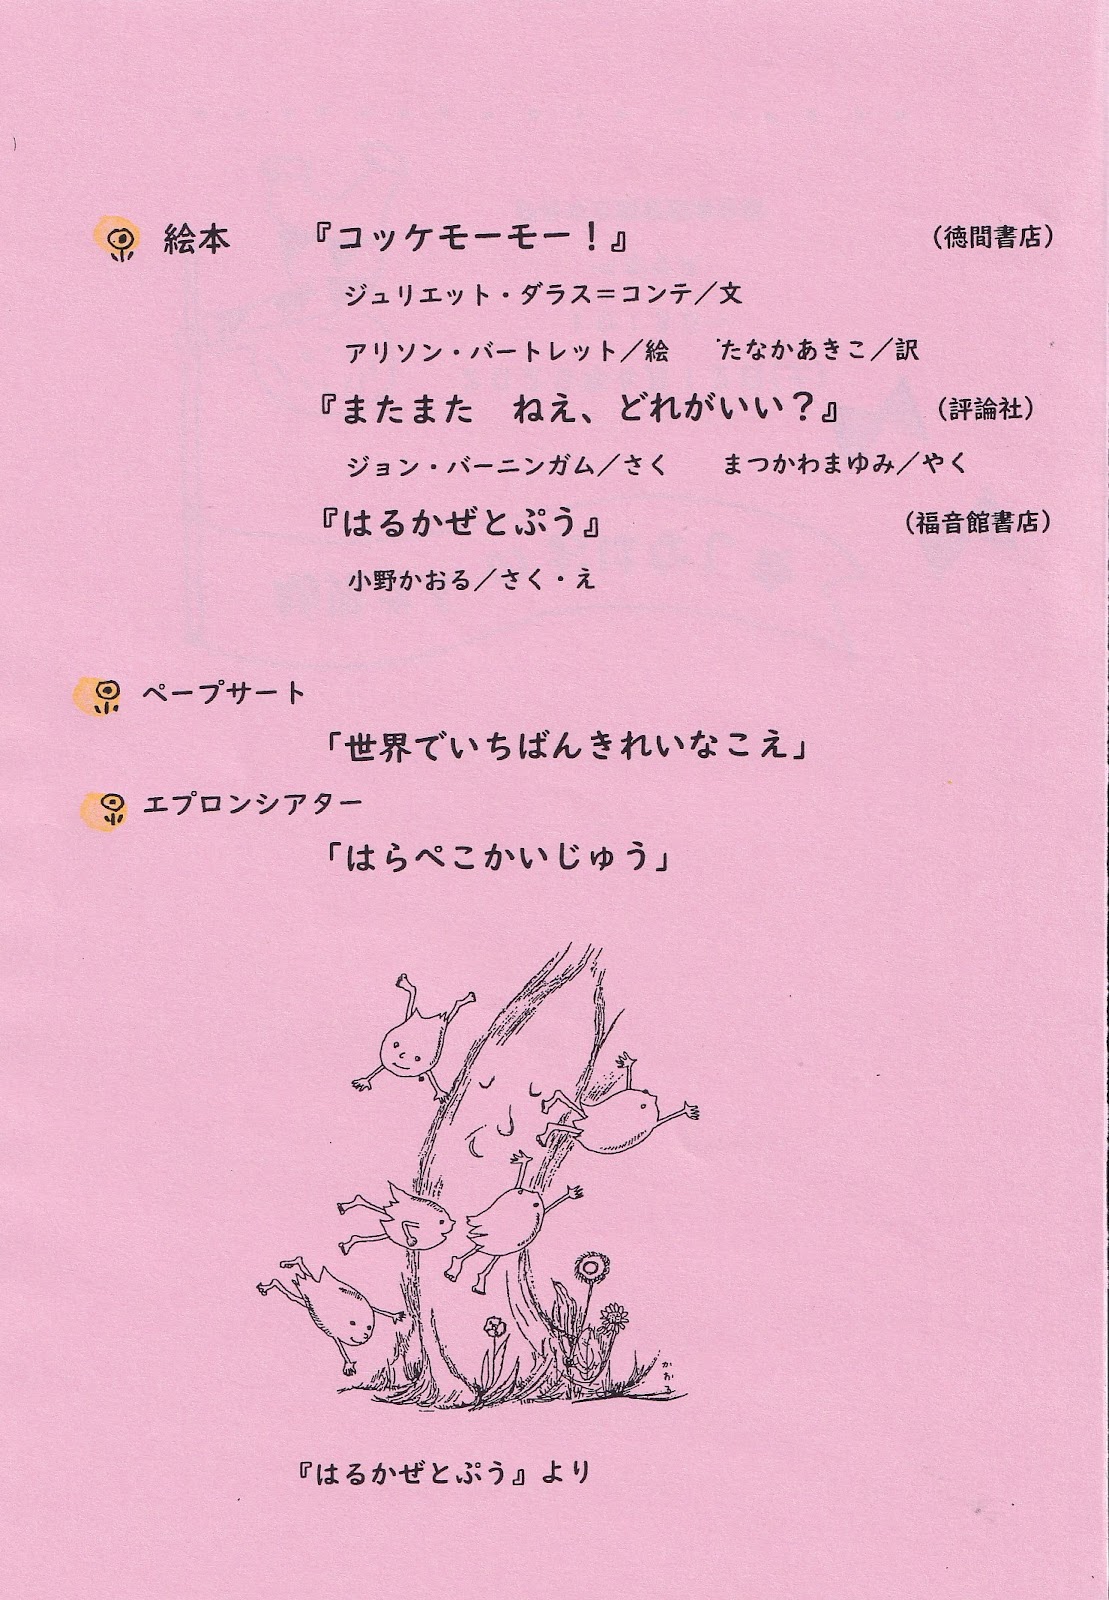 絵本 『コッケモーモー！』 （徳間書店）
ジュリエット・ダラス＝コンテ／文
アリソン・バートレット／絵 たなかあきこ／訳
『またまた ねえ、どれがいい？』 （評論社）
ジョン・バーニンガム／さく まつかわまゆみ／やく
『はるかぜとぷう』 （福音館書店）
小野かおる／さく・え
ペープサート
「世界でいちばんきれいなこえ」
エプロンシアター
「はらぺこかいじゅう」
かおる
『はるかぜとぷう』より